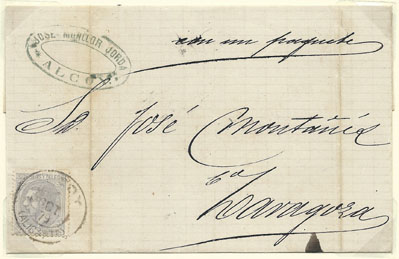 JOSÉ MONLLOR JORDÁ
ALCOY
con un paquete
Sr. José Montañés
Zaragoza